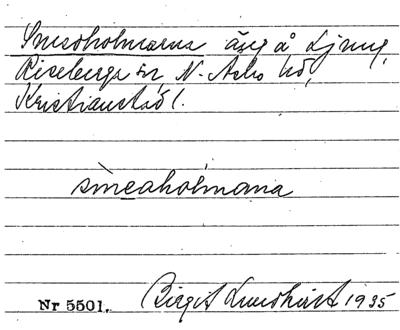 Smedholmarna äng å Ljung,
Riseberga sn N. Åsbo hd,
Kristianstad l.
smeaholmana
Nr 5501. Birgit Lundkvist 1935